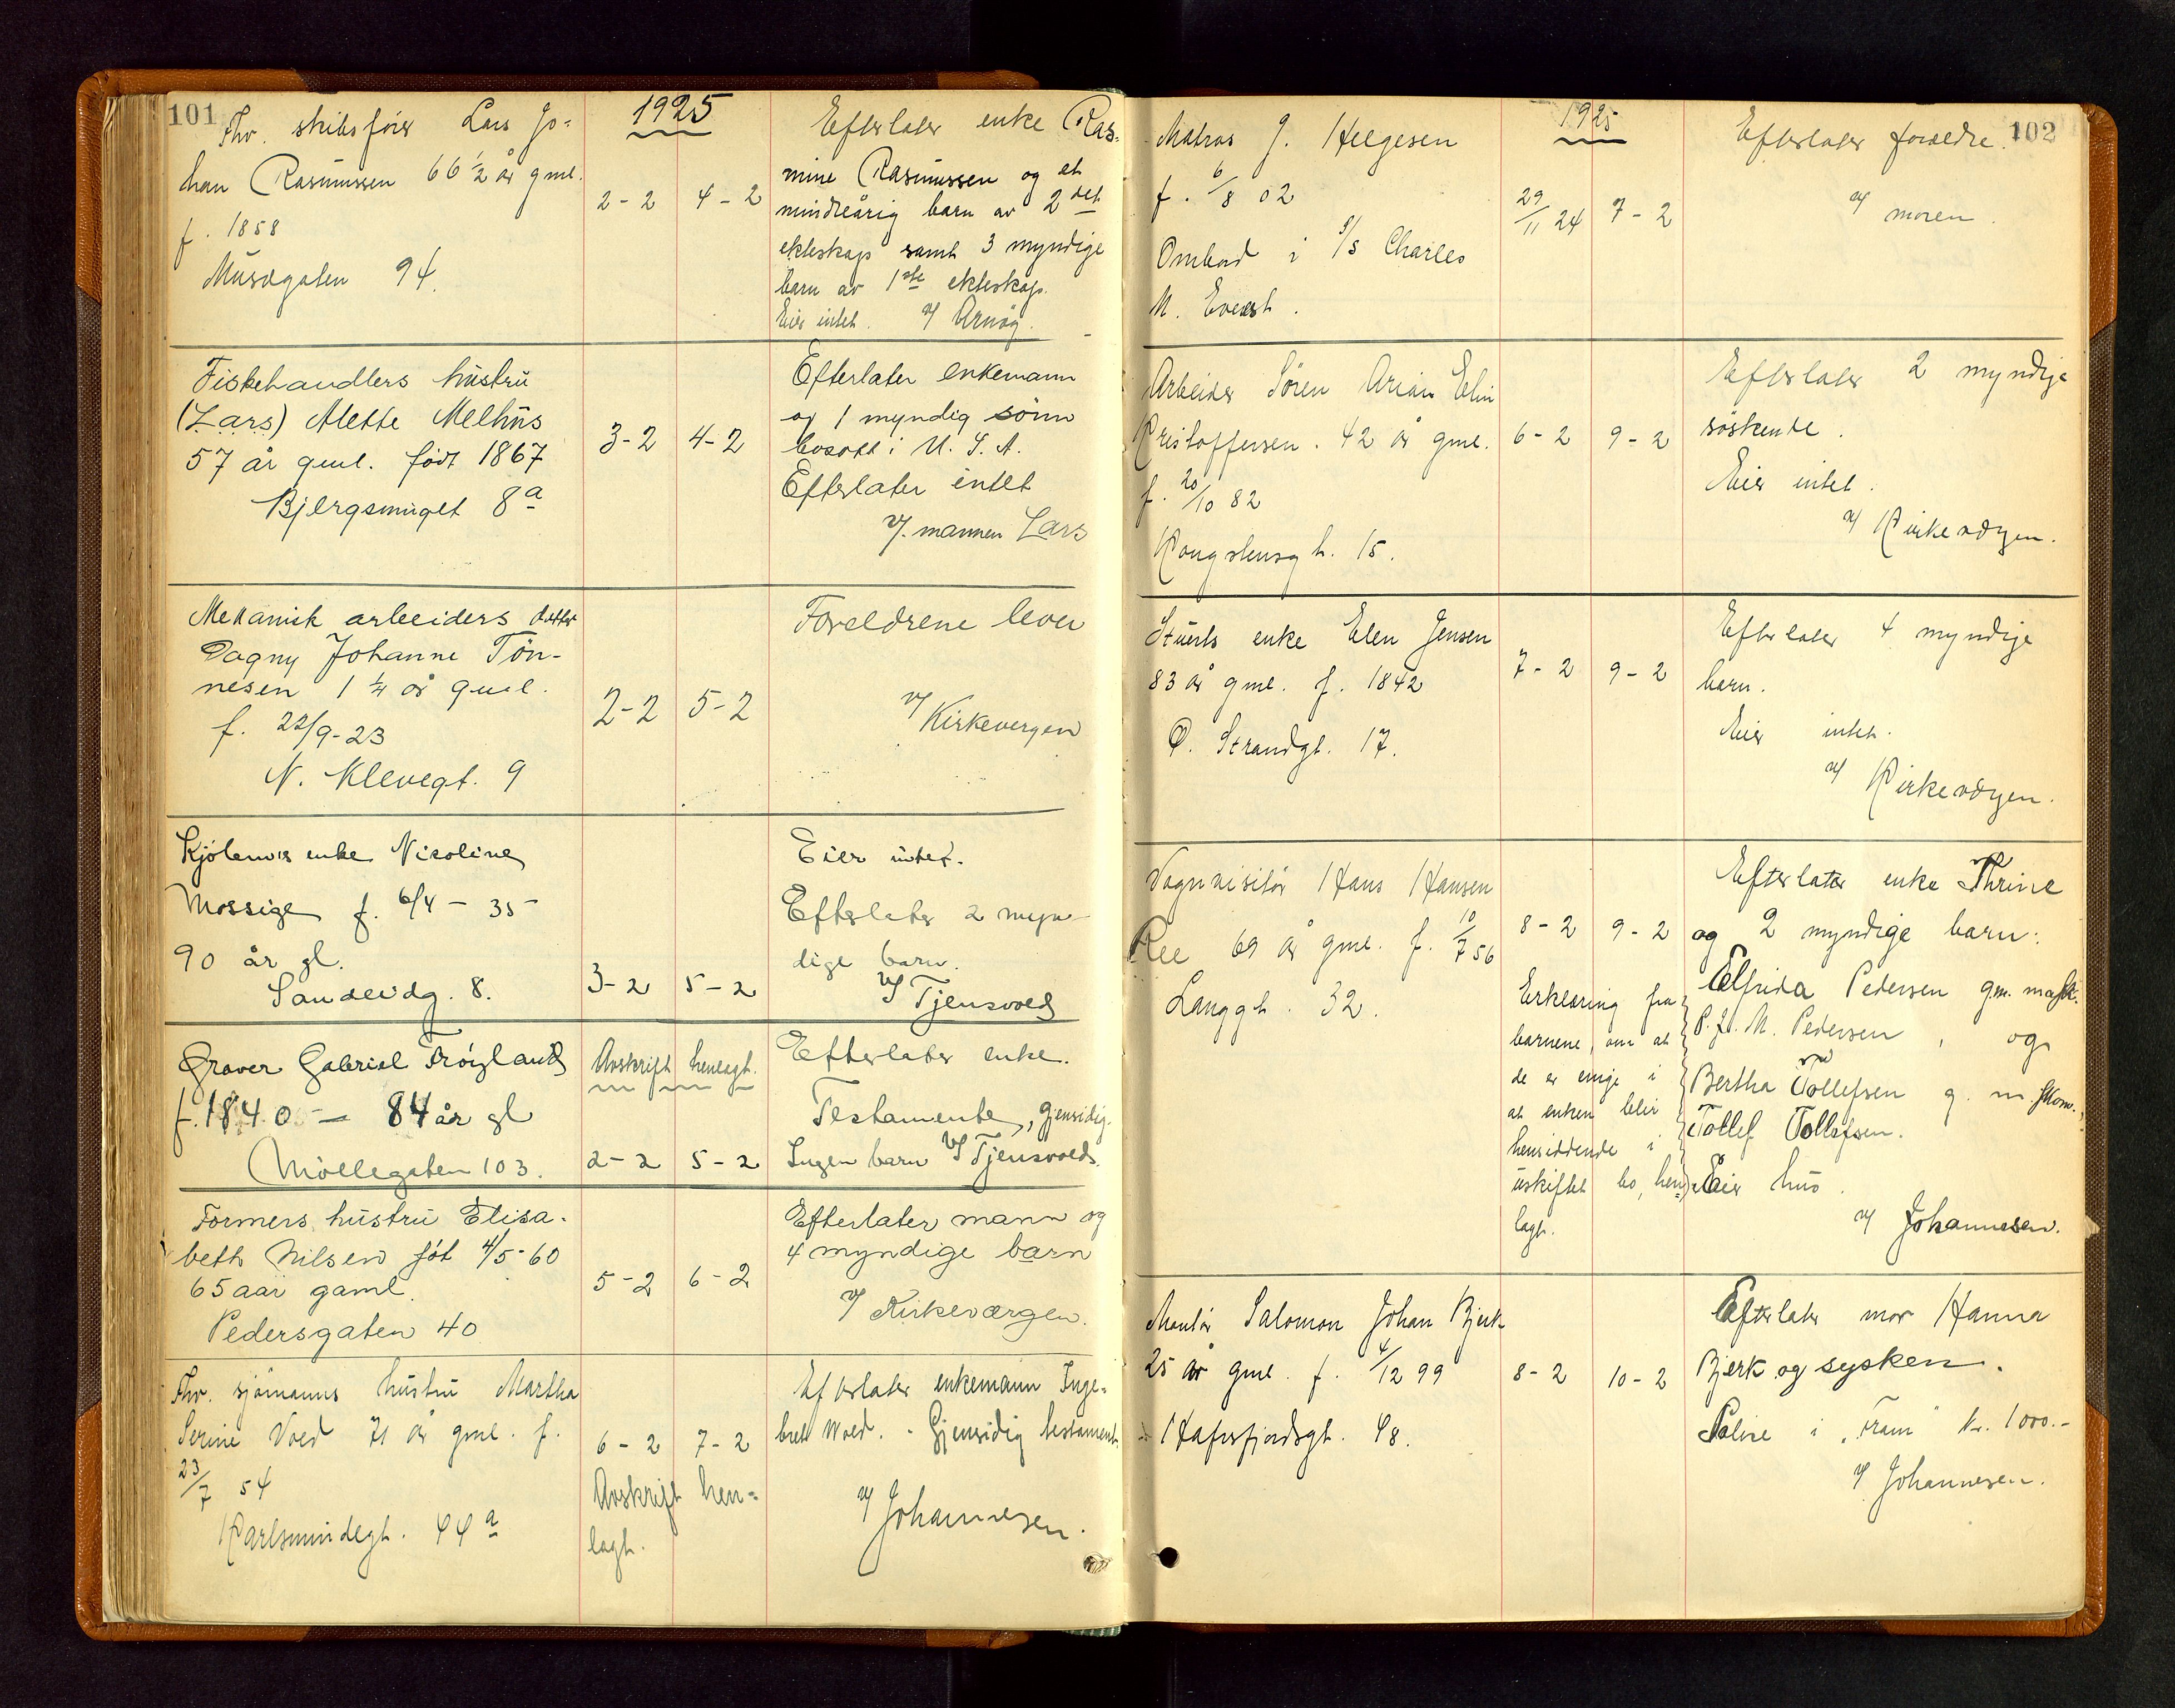 101
1925
Fhv. skibsfører Lars Jo-
han Rasmussen 66 1/2 år gml.
f. 1858
Musægaten 94.
2-2 4-2
Efterlater enke Ras-
mine Rasmussen og et
mindreårig barn av 2det
ekteskap samt 3 myndige
barn av 1ste ekteskap.
Eier intet. v/ Arnøy.
Fiskehandlers hustru
(Lars) Alette Melhus
57 år gml. født 1867
Bjergsmuget 8a
3-2 4-2
Efterlater enkemann
og 1 myndig sønn
bosatt i U. S. A.
Efterlater intet
v/. mannen Lars
Mekanisk arbeiders datter
Dagny Johanne Tøn-
nesen 1 1/4 år gml.
f. 22/9-23
N. Klevegt. 9
2-2 5-2
Foreldrene lever
v/ Kirkevergen
Kjølenors enke Nicoline
Mossige f. 6/4 - 35 -
90 år gl.
Sandeidg. 8.
3-2 5-2
Eier intet.
Efterlater 2 myn-
dige barn.
v/ Tjensvold
Graver Gabriel Frøyland
f. 1840 - 84 år gl
Møllegaten 103.
Avskrift henlagt.
2-2 5-2
Efterlater enke.
Testamente, gjensidig.
Ingen barn v/ Tjensvold.
Formers hustru Elisa-
beth Nilsen føt 4/5-60
65 aar gaml.
Pedersgaten 40
5-2 6-2
Efterlater mann og
4 myndige barn
v/ Kirkeværgen.
Fhv. sjømanns hustru Martha
Serine Voed 71 år gml. f.
23/7 54
Karlsmindegt. 44a
6-2 7-2
Avskrift hen-
lagt.
Efterlater enkemann Inge-
bret Woed. - Gjensidig testament.
v/ Johannesen.
102
1925
Matros J. Helgesen
f. 6/8 02
Ombord i S/S Charles
M. Everest.
29/11 24 7-2
Efterlater foreldre.
v/ moren.
Arbeider Søren Arian Elin
Kristoffersen. 42 år gml.
f. 20/10 82
Kongstensgt. 15.
6-2 9-2
Efterlater 2 myndige
søskende.
Eier intet.
v/ Kirkeværgen.
Stuerts enke Elen Jensen
83 år gml. f. 1842
Ø. Strandgt. 17.
7-2 9-2
Efterlater 4 myndige
barn.
Eier intet.
v/ Kirkeværgen.
Vognvisitør Hans Hansen
Ree 69 år gml. f. 10/7 56
Langgt. 32.
8-2 9-2
Erklæring fra
barnene, om at
de er enige i
at enken blir
hensiddende i
uskiftet bo, hen-
lagt.
Efterlater enke Thrine
og 2 myndige barn:
Elfrida Pedersen g.m. mask.
P. J. M. Pedersen, og
Bertha Tollefsen g. m. skom.
Tollef Tollefsen.
Eier hus.
v/ Johannesen.
Montør Salomon Johan Bjerk
25 år gml. f. 4/12 99
Hafrsfjordsgt. 48.
8-2 10-2
Efterlater mor Hanna
Bjerk og sysken.
Polise i "Fram" kr. 1000.-
v/ Johannesen.